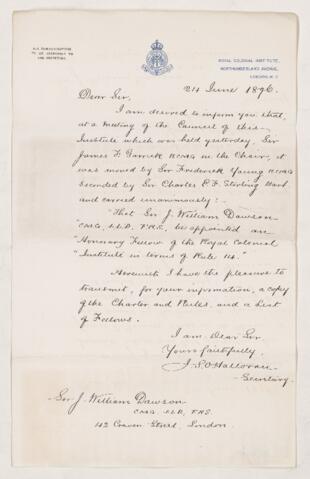 ALL COMMUNICATIONS
TO BE ADDRESSED TO
THE SECRETARY.
ROYAL COLONIAL INSTITUTE,
NORTHUMBERLAND AVENUE,
LONDON, W.C.
24 June 1896.
Dear Sir,
I am desired to inform you that,
at a meeting of the Council of this
Institute which was held yesterday, Sir
James F. Garrick KCMG in the Chair, it
was moved by Sir Frederick Young KCMG
seconded by Sir Charles E. F. Stirling Bart
and carried unanimously:-
"That Sir J. William Dawson
"CMG, LLD, FRS, be appointed an
"Honorary Fellow of the Royal Colonial
"Institute in terms of Rule 14."
Herewith I have the pleasure to
transmit, for your information, a copy
of the Charter and Rules, and a List
of Fellows.
I am Dear Sir
Yours faithfully,
J. S. O'Halloran
Secretary.
Sir J. William Dawson
CMG, LLD, FRS.
142 Craven Street, London.